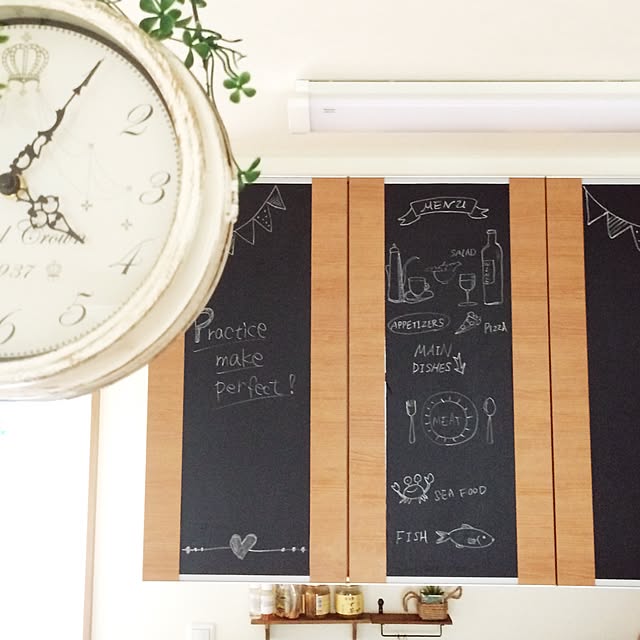 2
3
4
5
6
Crown
1937
Practice
make
perfect!
MENU
SALAD
APPETIZERS
PIZZA
MAIN
DISHES
MEAT
SEA FOOD
FISH